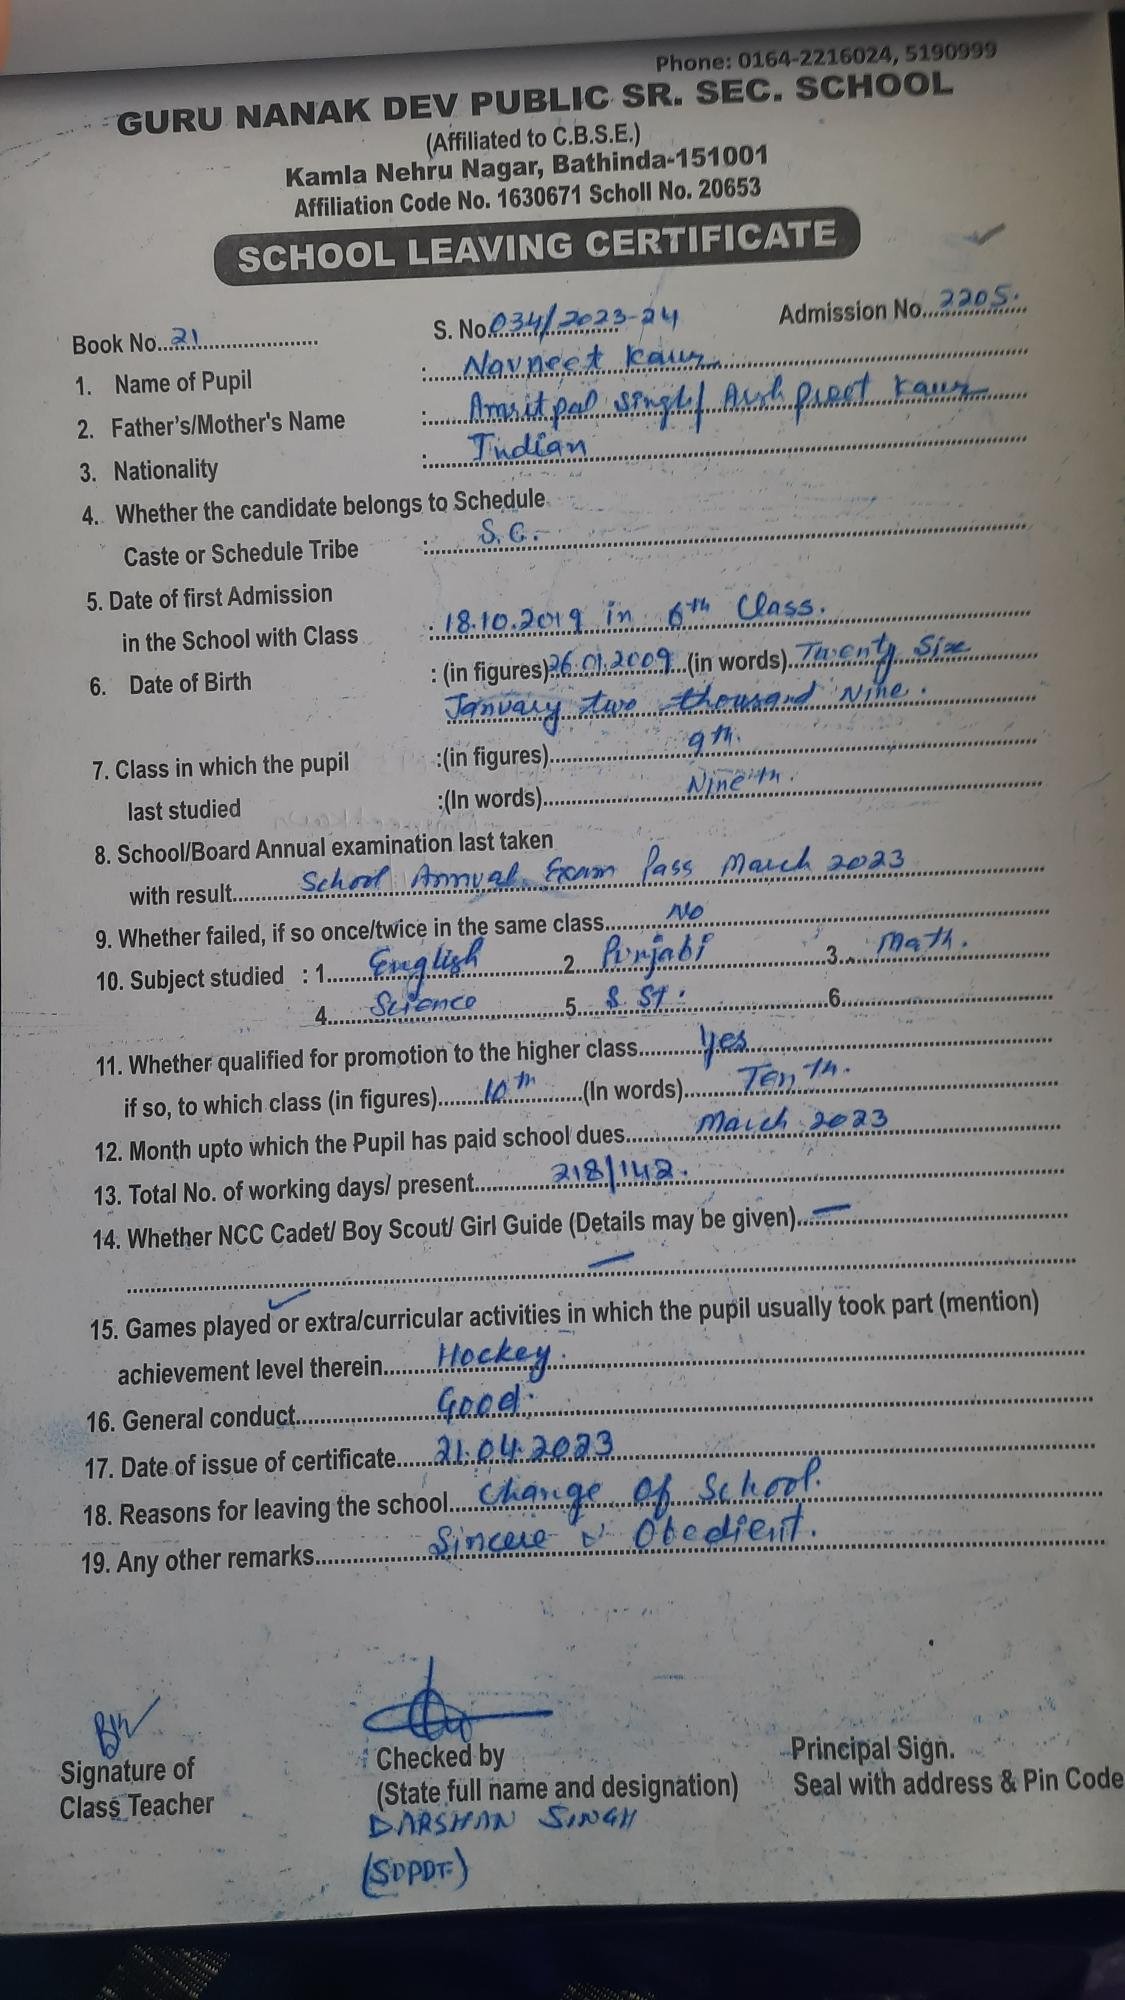 Phone: 0164-2216024, 5190999
GURU NANAK DEV PUBLIC SR. SEC. SCHOOL
(Affiliated to C.B.S.E.)
Kamla Nehru Nagar, Bathinda-151001
Affiliation Code No. 1630671 Scholl No. 20653
SCHOOL LEAVING CERTIFICATE
Book No. 21 S. No. 034/2023-24 Admission No. 2205.
1. Name of Pupil : Navneet Kaur
2. Father's/Mother's Name : Amritpal Singh/ Arshpreet Kaur
3. Nationality : Indian
4. Whether the candidate belongs to Schedule
Caste or Schedule Tribe : S.C.
5. Date of first Admission
in the School with Class : 18.10.2019 in 6th Class.
6. Date of Birth : (in figures) 26.01.2009 (in words) Twenty Six
January two thousand Nine.
7. Class in which the pupil :(in figures) 9th.
last studied :(In words) Nineth.
8. School/Board Annual examination last taken
with result School Annual Exam Pass March 2023
9. Whether failed, if so once/twice in the same class No
10. Subject studied : 1. English 2. Punjabi 3. Math.
4. Science 5. S. St. 6.
11. Whether qualified for promotion to the higher class Yes
if so, to which class (in figures) 10th (In words) Tenth.
12. Month upto which the Pupil has paid school dues March 2023
13. Total No. of working days/ present 218/142.
14. Whether NCC Cadet/ Boy Scout/ Girl Guide (Details may be given) —
—
15. Games played or extra/curricular activities in which the pupil usually took part (mention)
achievement level therein Hockey.
16. General conduct Good.
17. Date of issue of certificate 21.04.2023
18. Reasons for leaving the school Change of School.
19. Any other remarks Sincere & Obedient.
Signature of Checked by Principal Sign.
Class Teacher (State full name and designation) Seal with address & Pin Code
DARSHAN SINGH